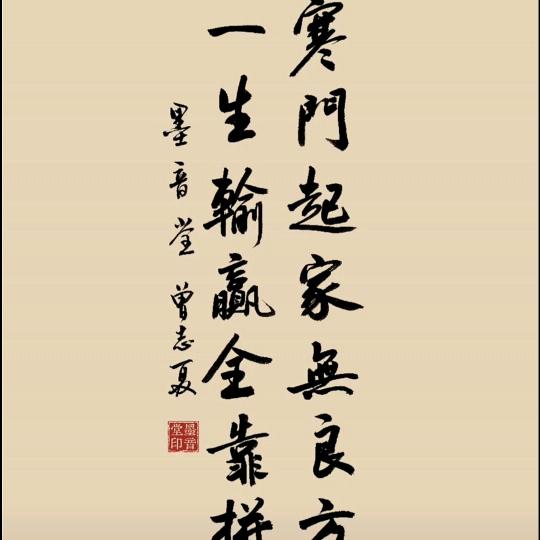 寒門起家無良方
一生輸贏全靠拼
墨音堂 曾志夏
墨音
堂印